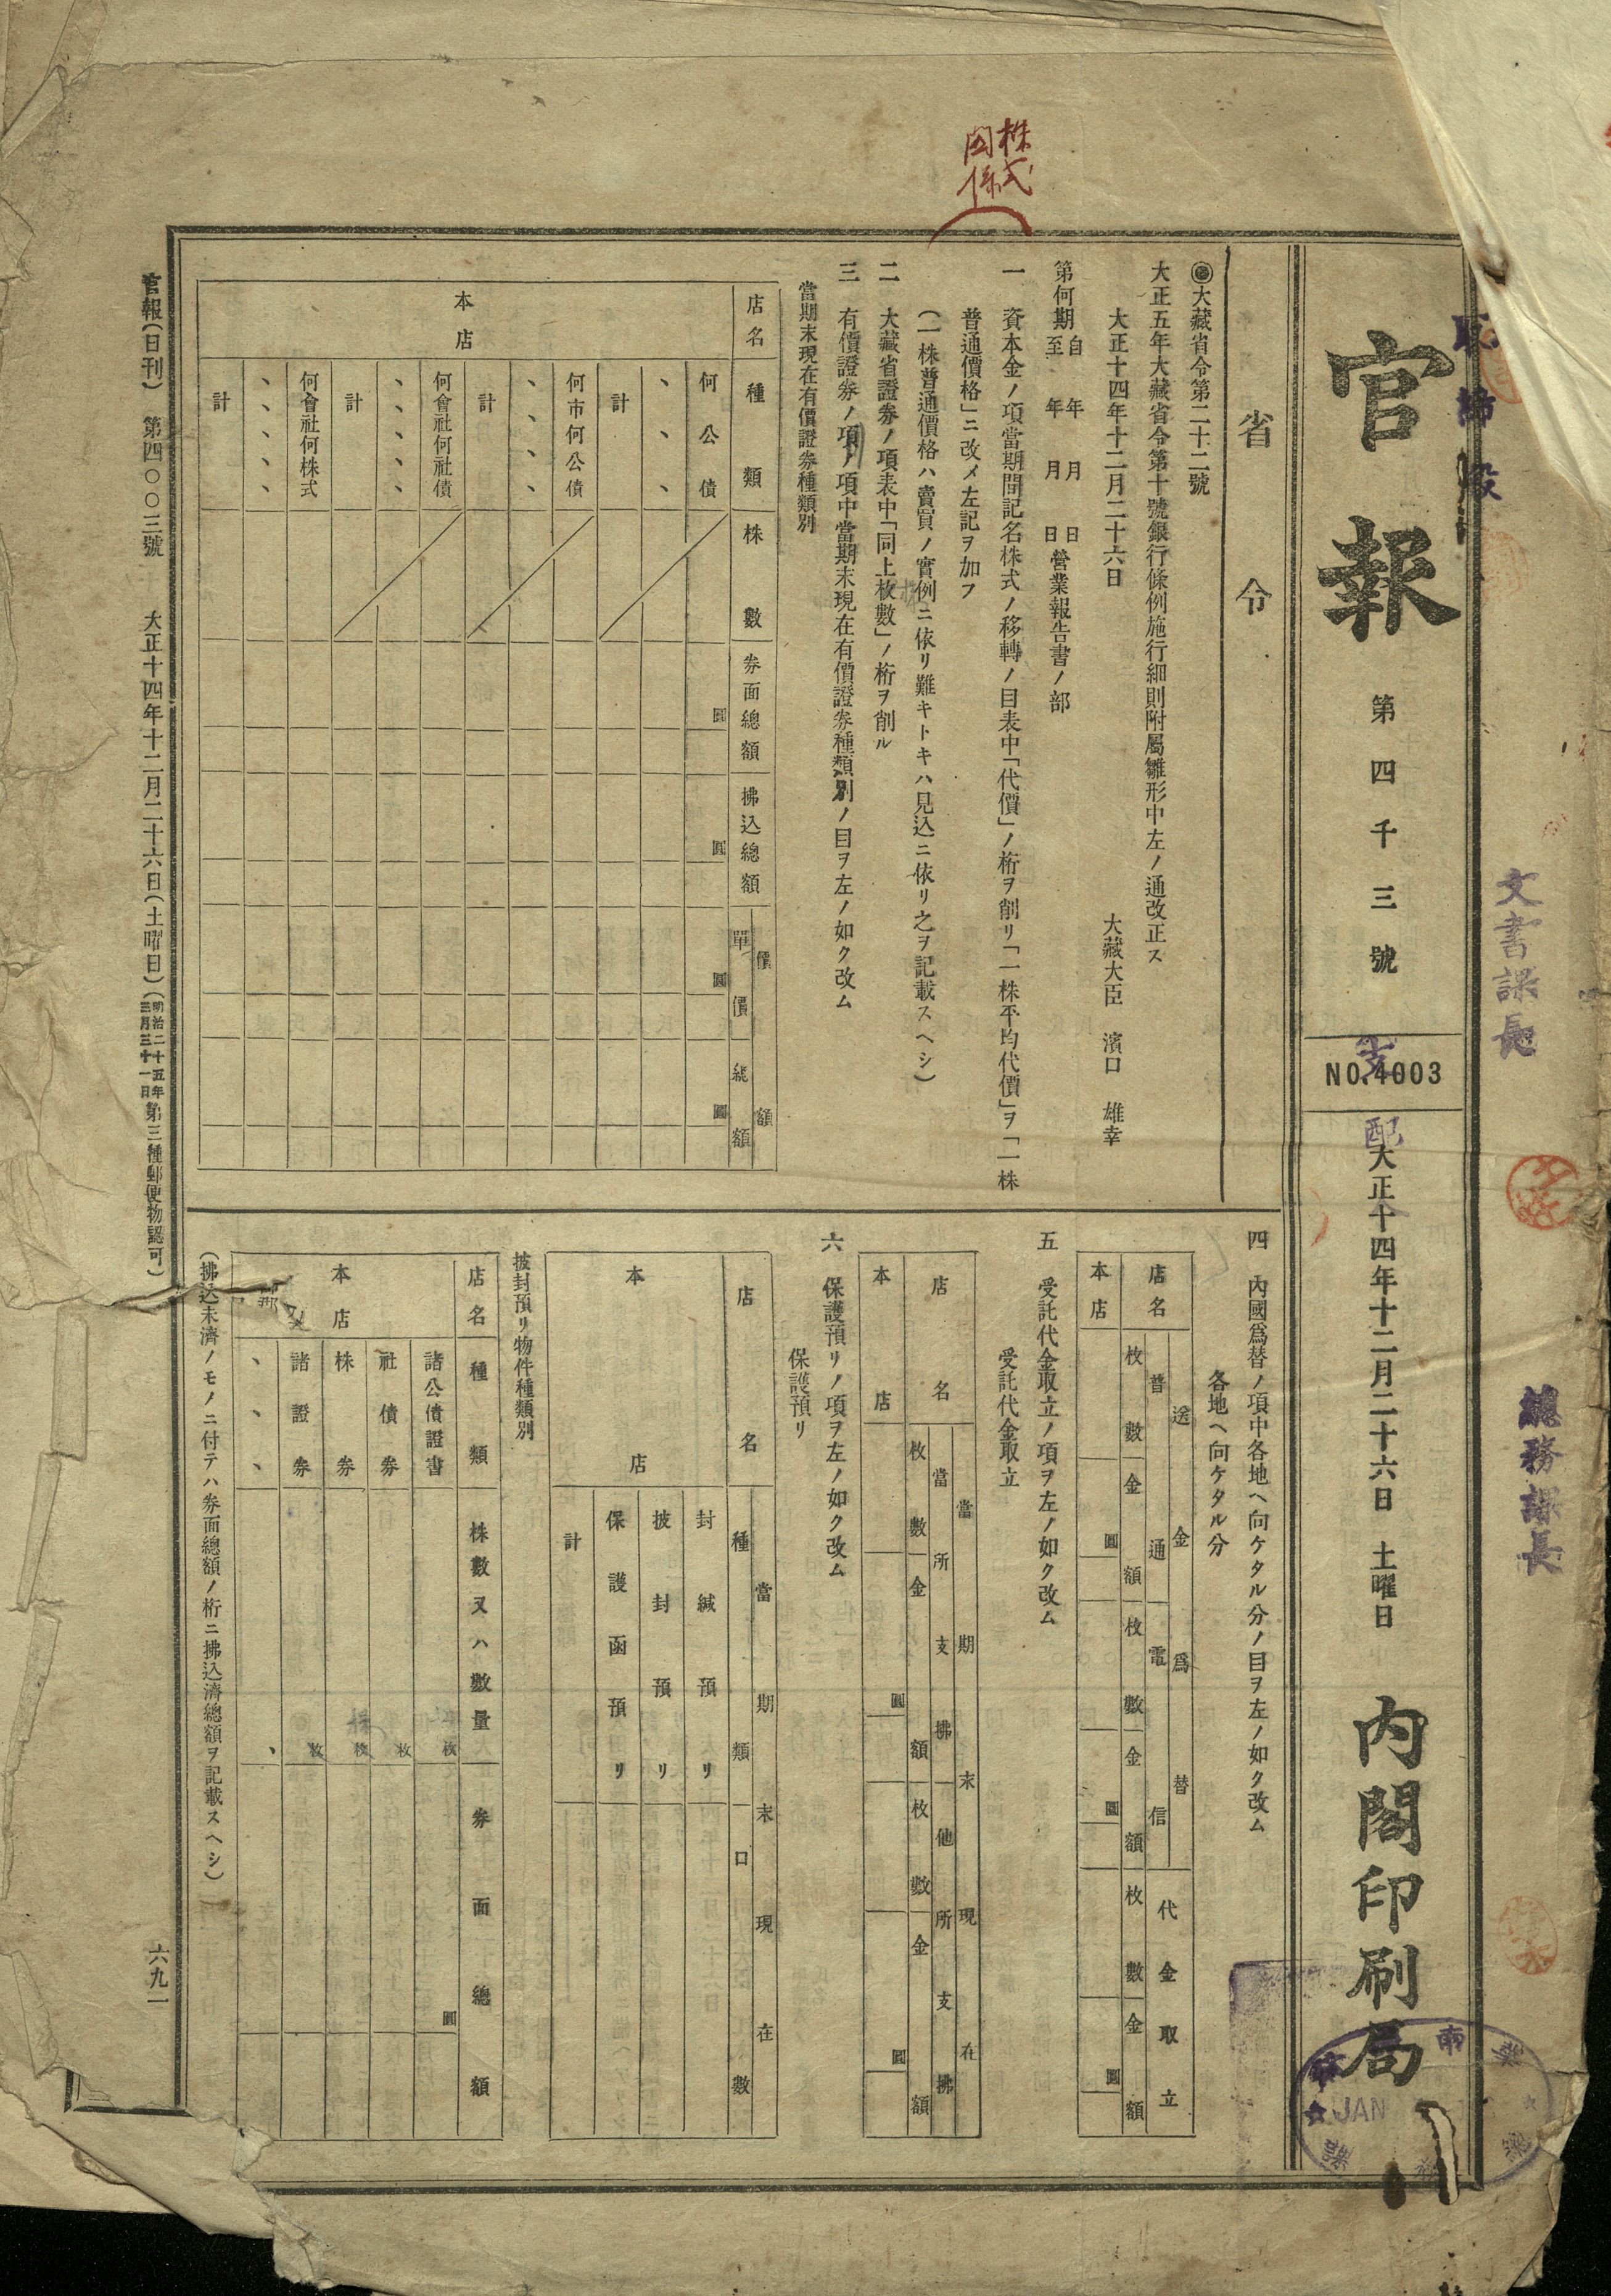 株式
関係
官報
第四千三號
NO.4003
大正十四年十二月二十六日 土曜日
內閣印刷局
取締役
文書課長
總務課長
配
JAN
省令
◉大藏省令第二十二號
大正五年大藏省令第十號銀行條例施行細則附屬雛形中左ノ通改正ス
大正十四年十二月二十六日
大藏大臣 濱口 雄幸
第何期 自 年 月 日 至 年 月 日 營業報告書ノ部
一 資本金ノ項當期間記名株式ノ移轉ノ目表中「代價」ノ桁ヲ削リ「一株平均代價」ヲ「一株
普通價格」ニ改メ左記ヲ加フ
(一株普通價格ハ賣買ノ實例ニ依リ難キトキハ見込ニ依リ之ヲ記載スヘシ)
二 大藏省證券ノ項表中「同上枚數」ノ桁ヲ削ル
三 有價證券ノ項ノ項中當期末現在有價證券種類別ノ目ヲ左ノ如ク改ム
當期末現在有價證券種類別
店名 種類 株數 券面總額 拂込總額 價額 單價 總額
本店
何公債 圓 圓 圓 圓
、、、
計
何市何公債
、、、、
計
何會社何社債
、、、、
計
何會社何株式
、、、、
計
四 內國爲替ノ項中各地ヘ向ケタル分ノ目ヲ左ノ如ク改ム
各地ヘ向ケタル分
店名 送金爲替 代金取立
普通 電信
枚數 金額 枚數 金額 枚數 金額
本店 圓 圓 圓
五 受託代金取立ノ項ヲ左ノ如ク改ム
受託代金取立
店名 當期末現在
當所支拂 他所支拂
枚數 金額 枚數 金額
本店 圓 圓
六 保護預リノ項ヲ左ノ如ク改ム
保護預リ
店名 當期末現在
種類 口數
本店
封緘預リ
披封預リ
保護函預リ
計
披封預リ物件種類別
店名 種類 株數又ハ數量 券面總額
本店
諸公債證書 枚 圓
社債券 枚
株券 枚
諸證券 枚
、、、 、
(拂込未濟ノモノニ付テハ券面總額ノ桁ニ拂込濟總額ヲ記載スヘシ)
官報(日刊) 第四〇〇三號 大正十四年十二月二十六日(土曜日)(明治二十五年三月三十一日第三種郵便物認可)
六九一